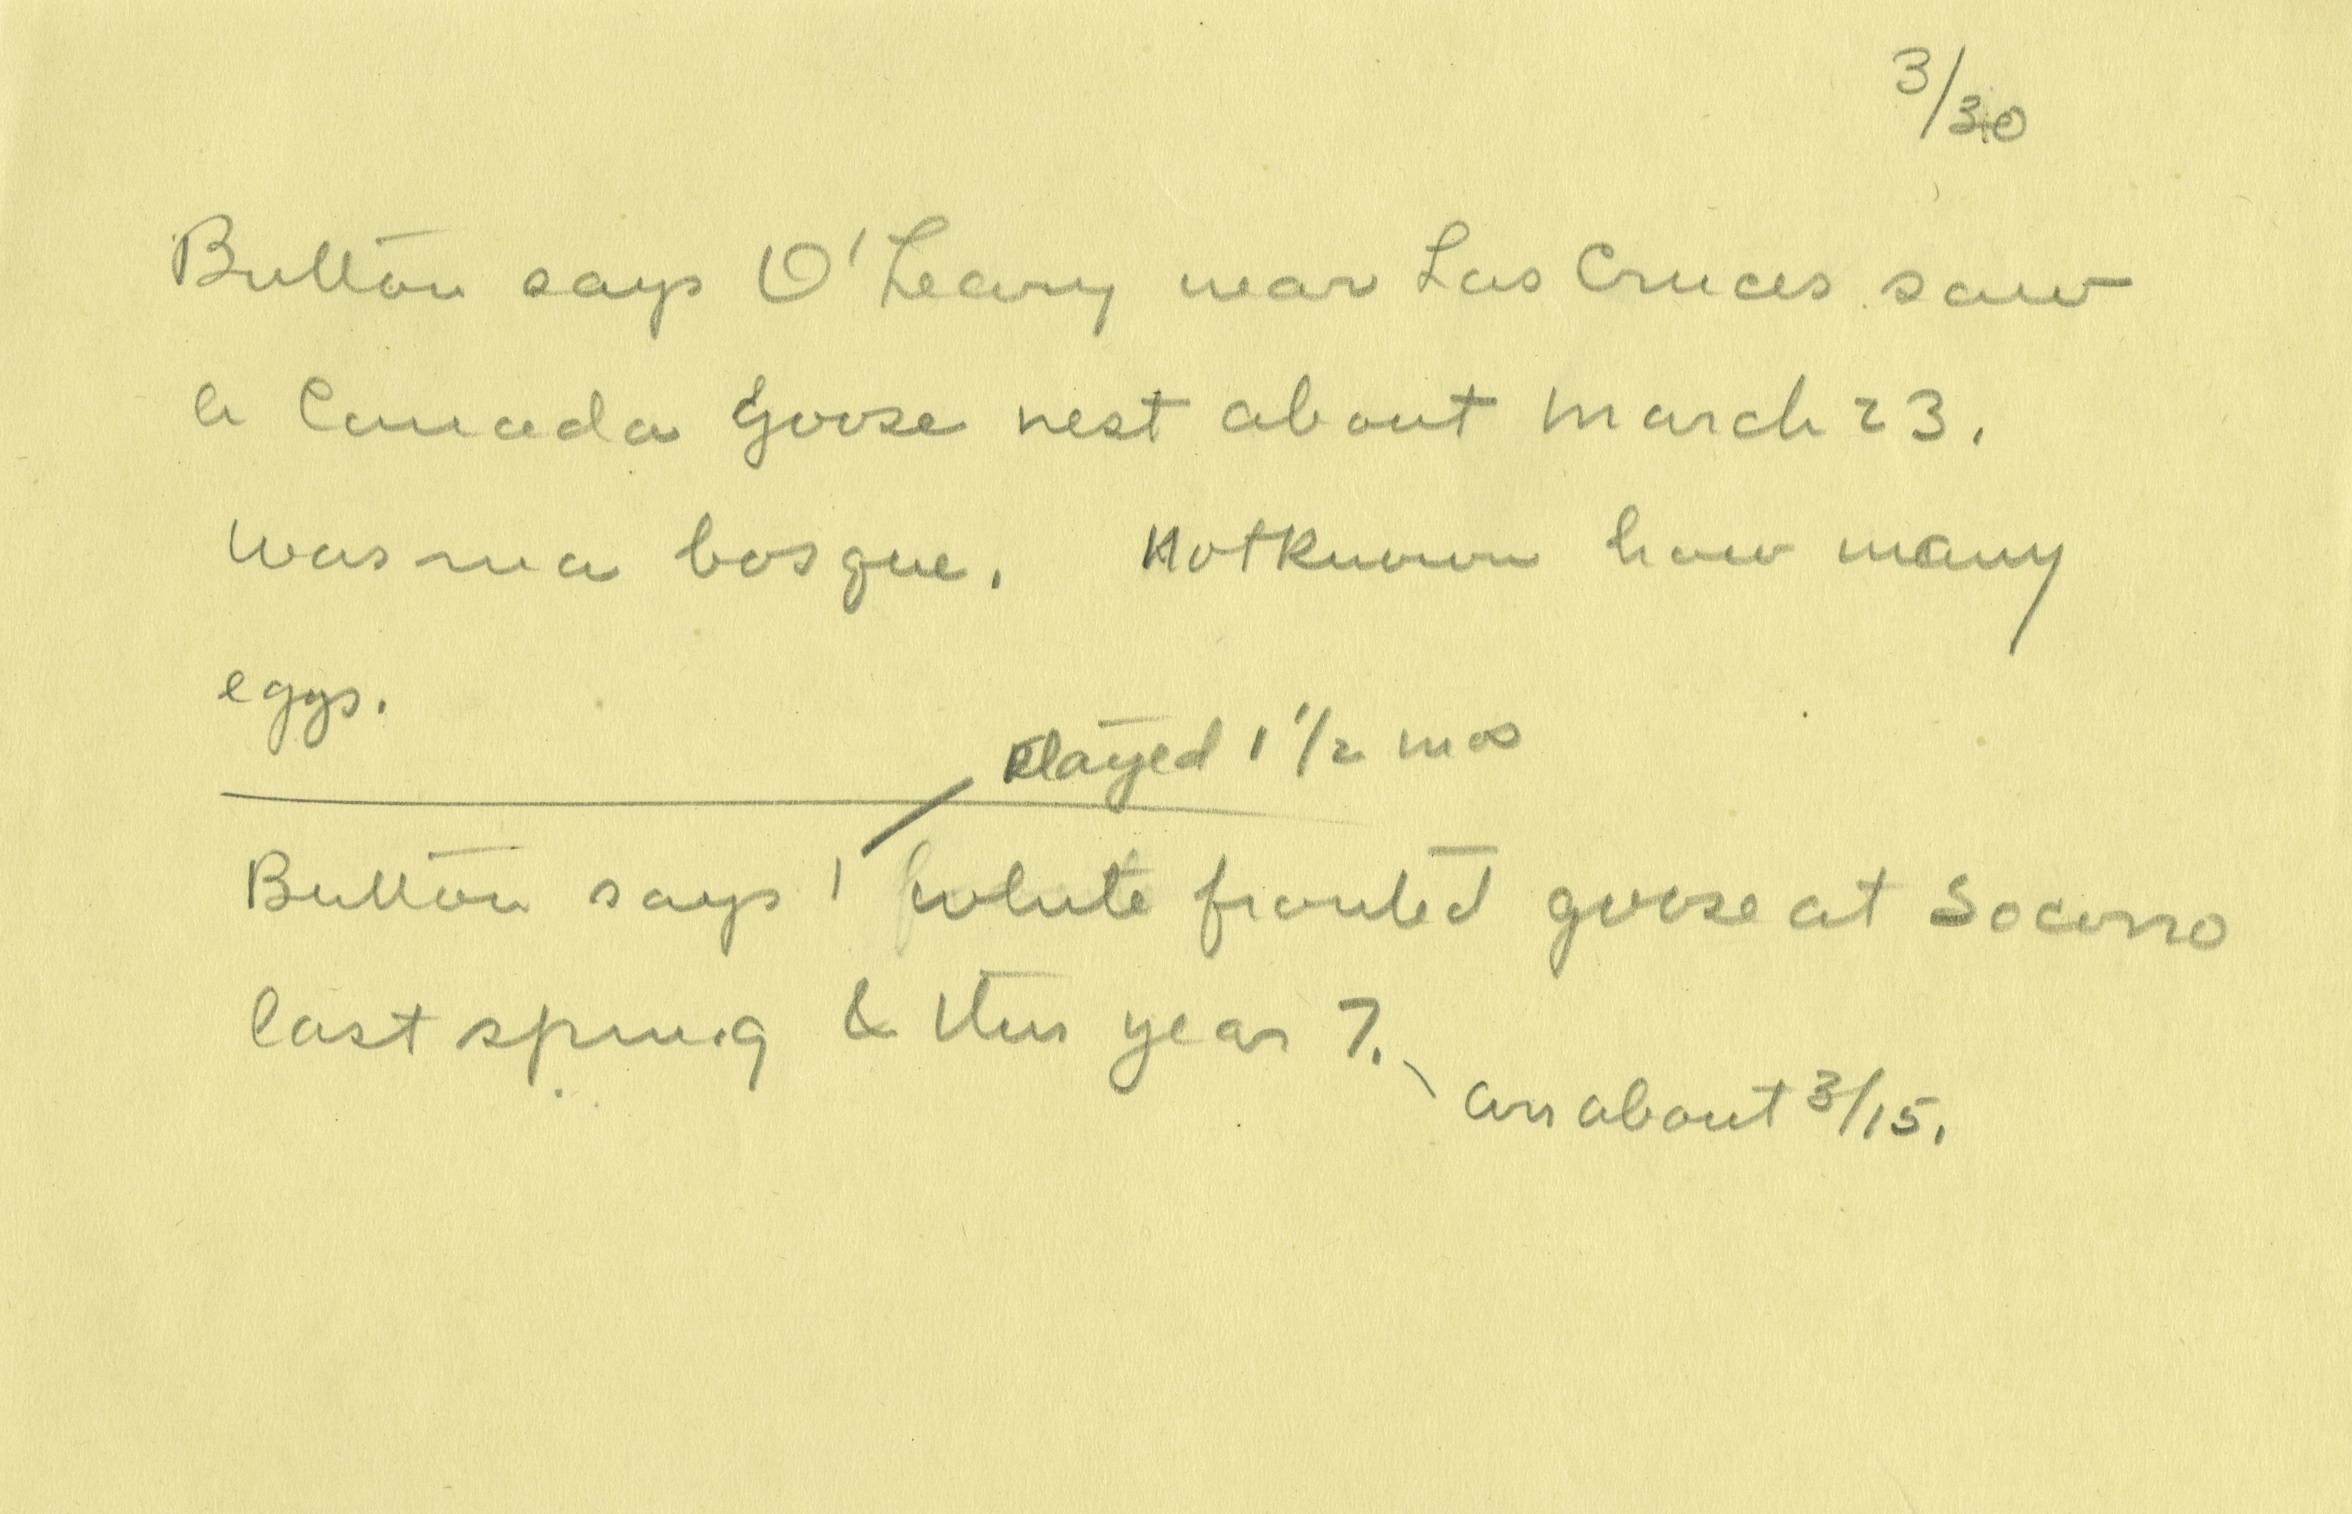 3/30
Button says O'Leary near Las Cruces saw
a Canada Goose nest about March 23.
Was in a bosque. Not known how many
eggs.
Stayed 1 1/2 mos
Button says 1 white fronted goose at Socorro
last spring & this year 7.
arr about 3/15.